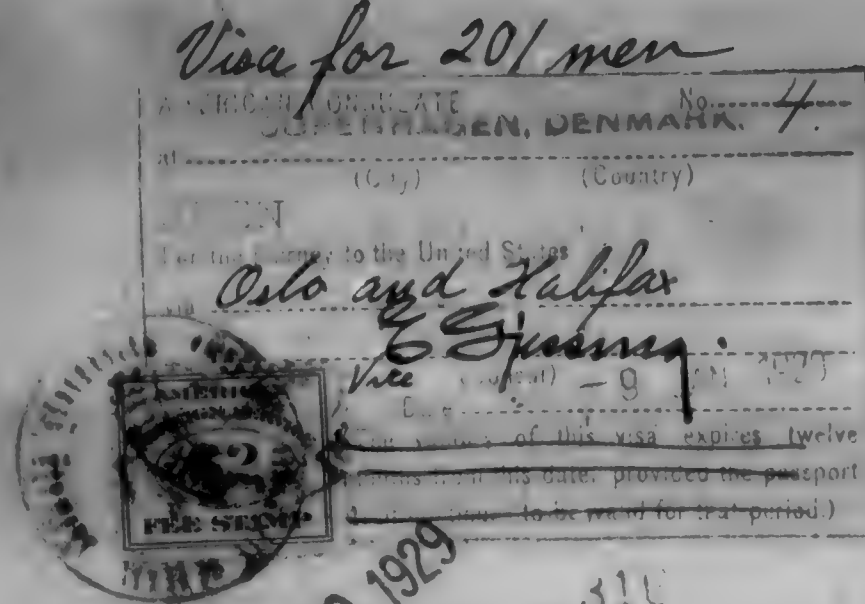 Visa for 201 men
AMERICAN CONSULATE No. 4.
COPENHAGEN, DENMARK.
at
(City) (Country)
For the journey to the United States
via Oslo and Halifax
Vice (Consul)
Date - 9 JAN 1929
of this visa expires twelve
months from this date, provided the passport
to be valid for that period.)
AMERICAN
2
FEE STAMP
1929